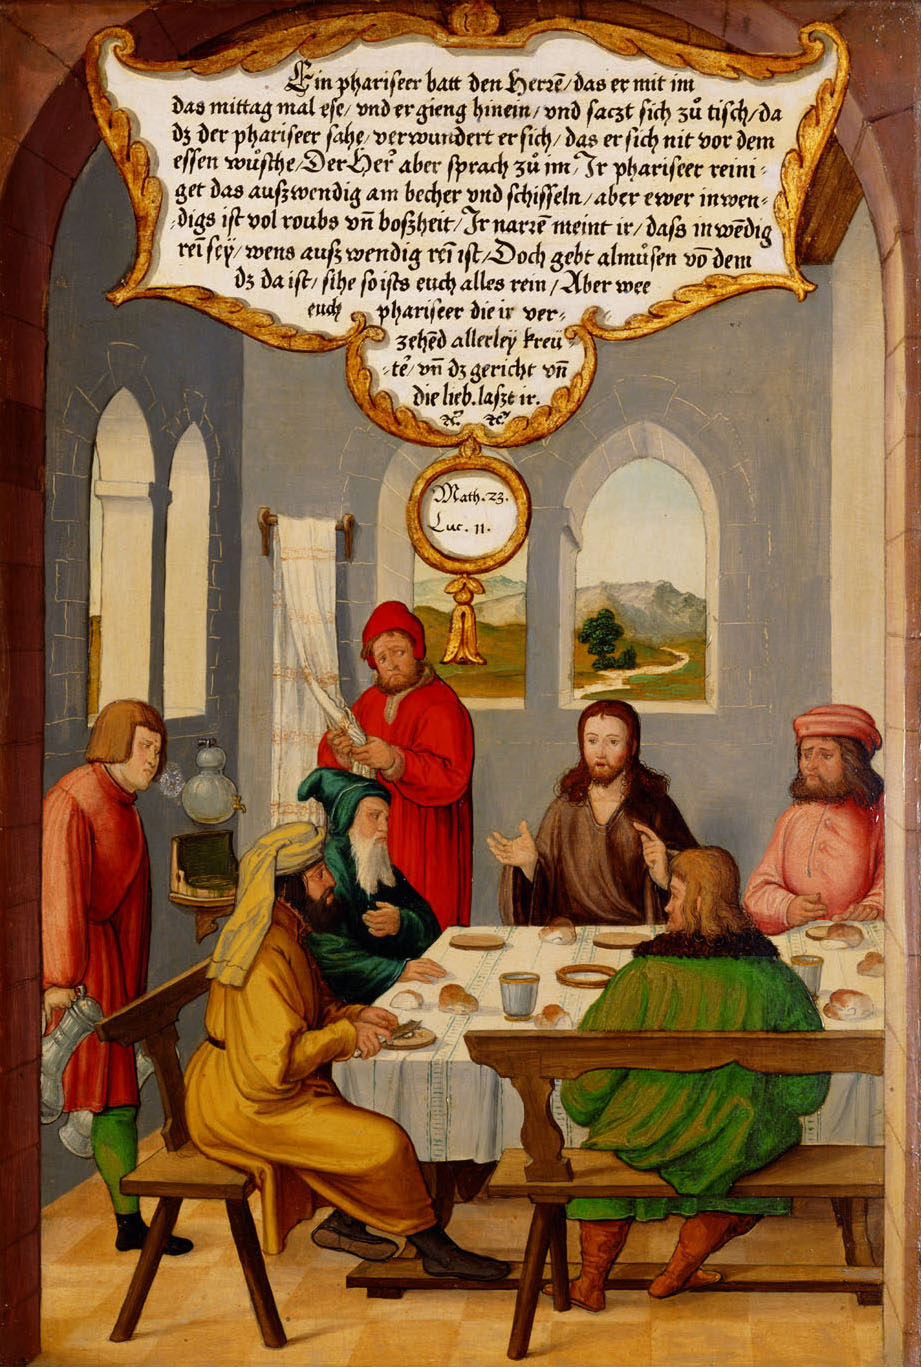 Ein phariseer batt den Herrē/ das er mit im
das mittag mal ese/ vnd er gieng hinein/ vnd saczt sich zů tisch/ da
dz der phariseer sahe/ verwundert er sich/ das er sich nit vor dem
essen wůsche/ Der Her̄ aber sprach zů im/ Ir phariseer reini-
get das auszwendig am becher vnd schisseln/ aber ewer inwen-
digs ist vol roubs vn̄ boszheit/ Ir narrē meint ir/ dass inwēdig
rein̄ seÿ/ wens auszwendig rein̄ ist/ Doch gebt almůsen vō dem
dz da ist/ sihe so ists euch alles rein/ Aber wee
euch phariseer die ir ver-
zehēd allerleÿ kreü-
te᷑/ vn̄ dz gericht vn̄
die lieb. laszt ir.
ꝛc̄ ꝛc̄
Math. 23.
Luc. 11.